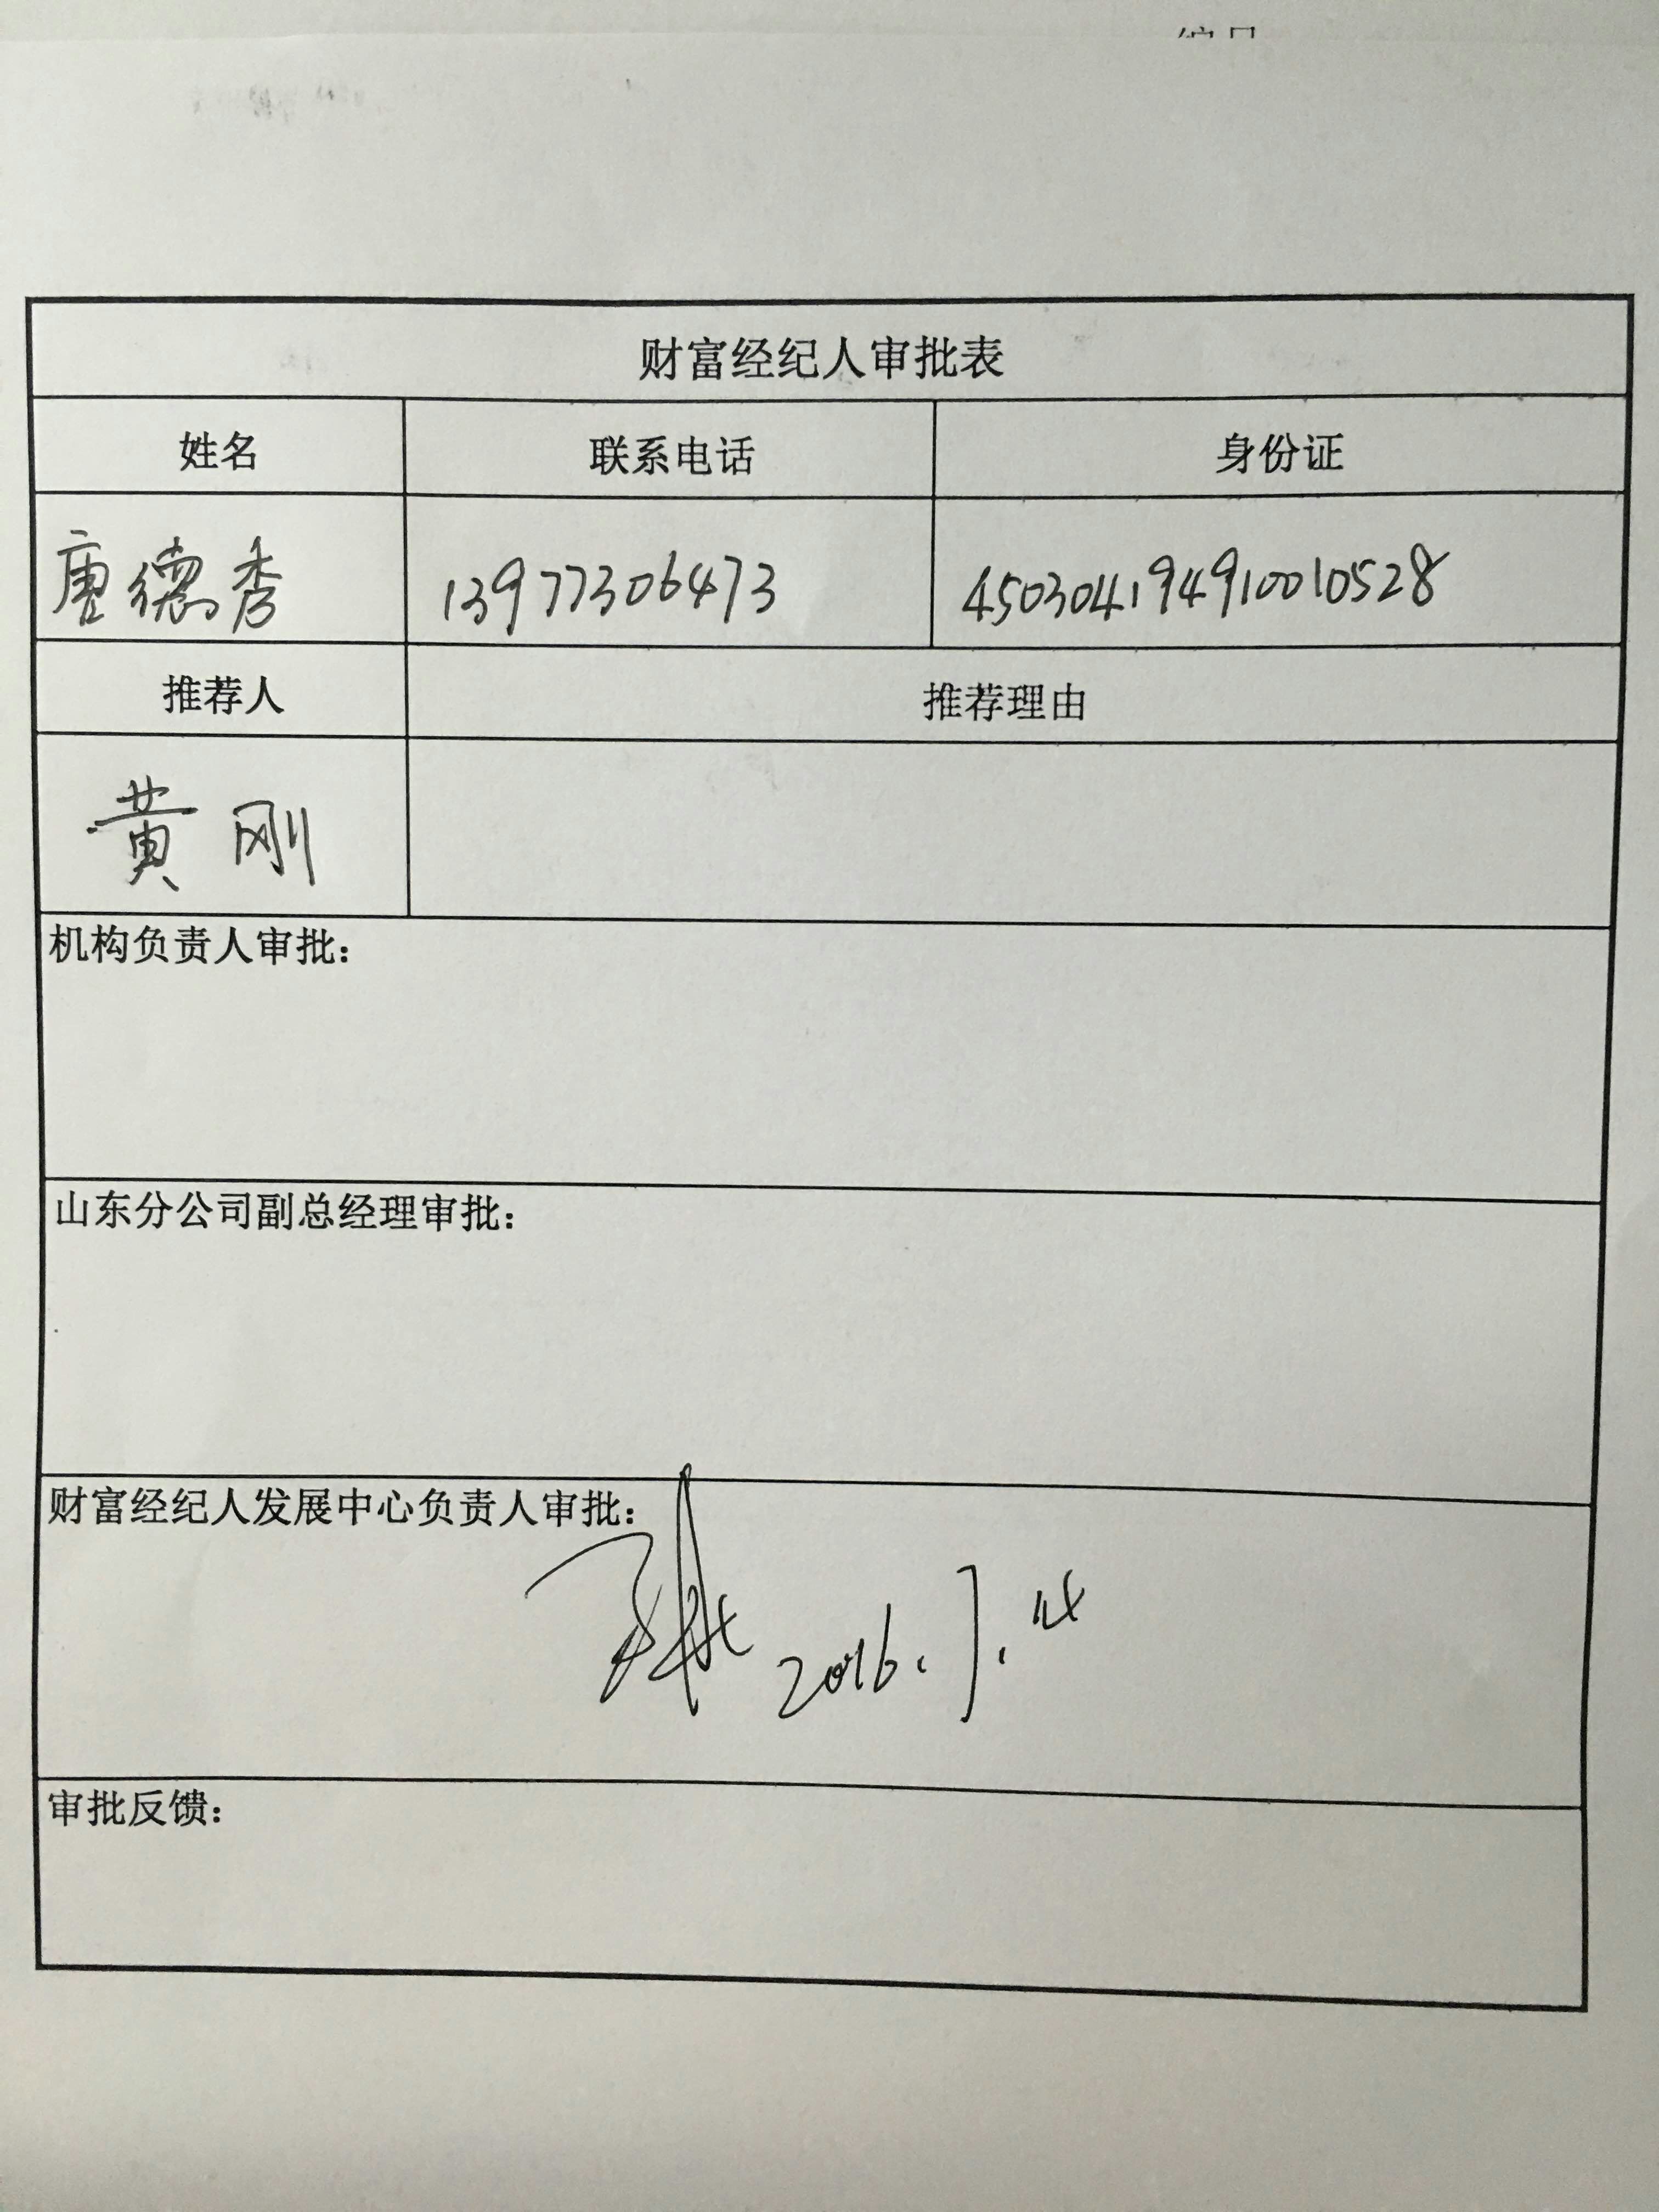 财富经纪人审批表
姓名 联系电话 身份证
唐德秀 13977306473 450304194910010528
推荐人 推荐理由
黄刚
机构负责人审批：
山东分公司副总经理审批：
财富经纪人发展中心负责人审批：
2016.7.14
审批反馈：